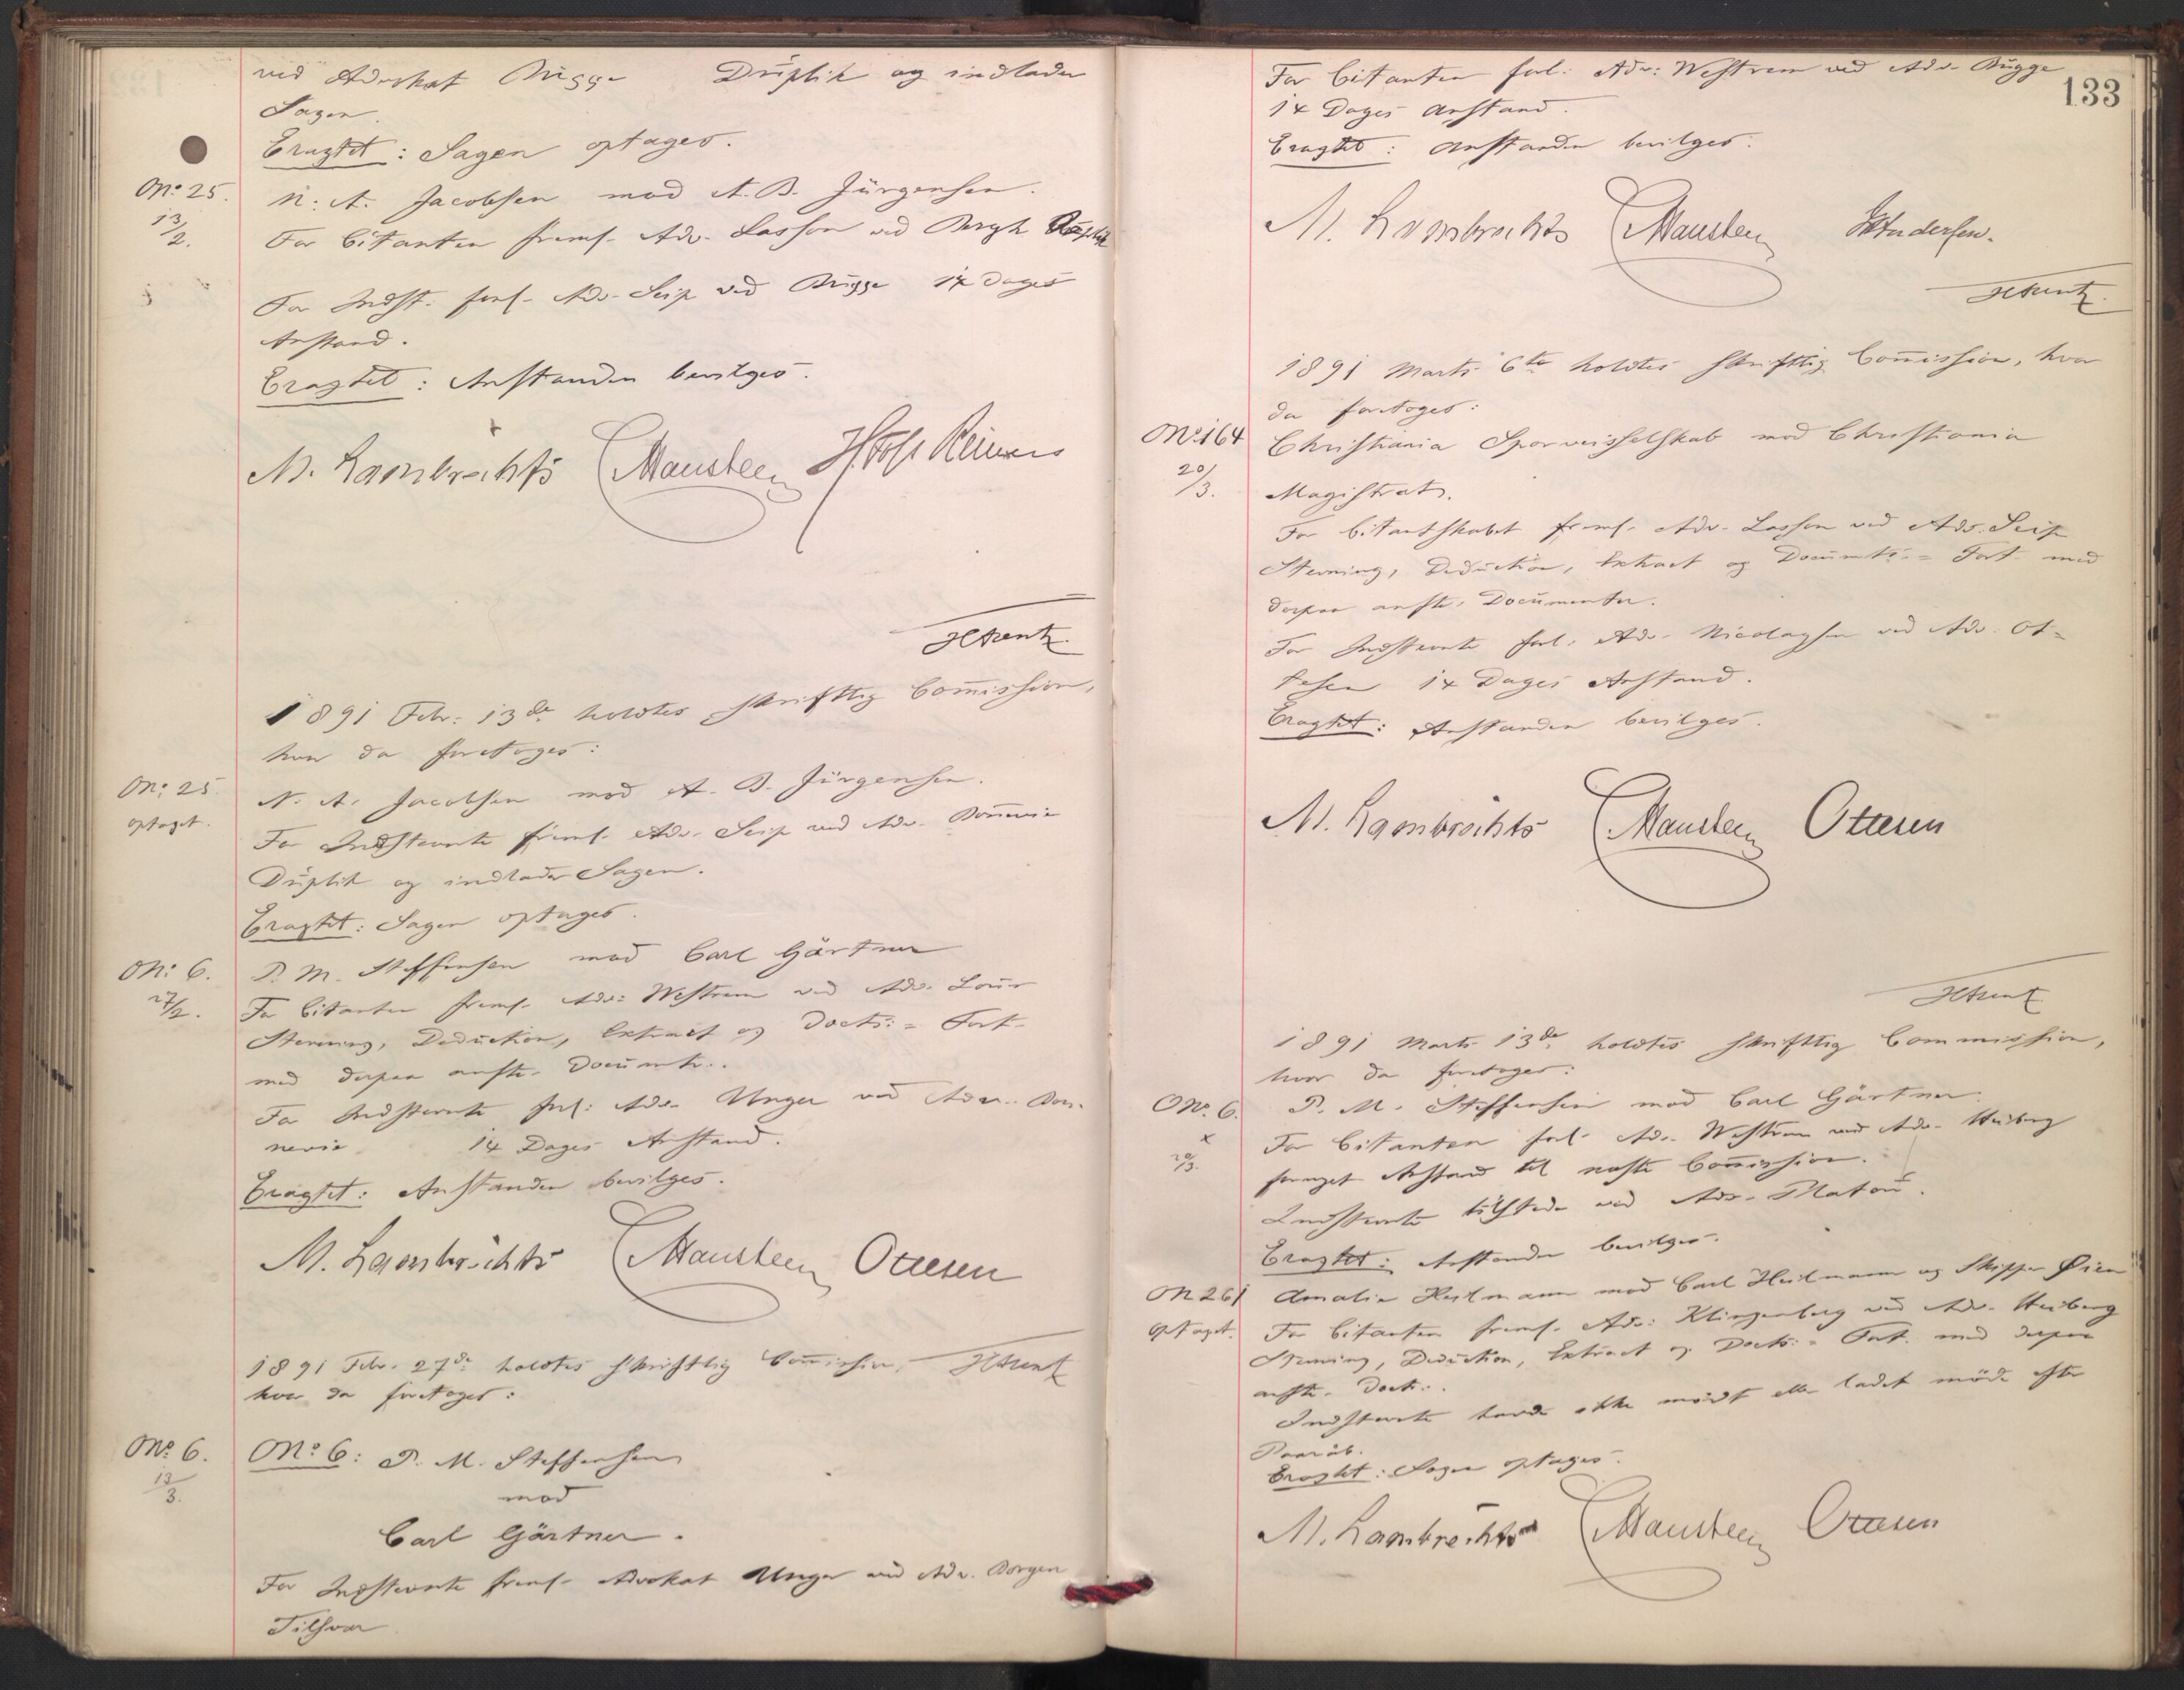 ved Advokat Bugge Duplik og indlader
Sagen.
Eragtet: Sagen optages.
No. 25. N. A. Jacobsen mod A. B. Jürgensen.
13/2. For Citanten freml. Adv. Lasson ved Bergh Replik
For Indst. forl. Adv. Seip ved Bugge 14 Dages
Anstand.
Eragtet: Anstanden bevilges.
M. Lambrechts Mausteen Reimers
1891 Febr. 13de holdtes skriftlig Commission,
hvor da foretoges:
No. 25 N. A. Jacobsen mod A. B. Jürgensen.
optaget. For Indstevnte freml. Adv. Seip ved Adv. Bonnevie
Duplik og indlader Sagen.
Eragtet: Sagen optages.
No. 6. P. M. Steffensen mod Carl Gärtner
27/2. For Citanten fremf. Adv. Westrem ved Adv.
Stevning, Deduction, Extract og Docts.= Fort.
med derpaa anfte. Documtr.
For Indstevnte forl. Adv. Unger ved Adv. Bon-
nevie 14 Dages Anstand.
Eragtet: Anstanden bevilges.
M. Lambrechts Mausteen Ottesen
1891 Febr. 27de holdtes skriftlig Commission,
hvor da foretoges:
No. 6. No. 6: P. M. Steffensen
13/3. mod
Carl Gärtner.
For Indstevnte fremf. Advokat Unger ved Adv. Borgen
Tilsvar
133
For Citanten forl. Adv. Westrem ved Adv. Bugge
14 Dages Anstand.
Eragtet: Anstanden bevilges.
M. Lambrechts Mausteen Andersen.
1891 Marts 6te holdtes skriftlig Commission, hvor
da foretoges:
No. 164 Christiania Sporveisselskab mod Christiania
20/3. Magistrat.
For Citantskabet fremf. Adv. Lasson ved Adv. Seip
Stevning, Deduction, Extract og Documts.= Fort. med
derpaa anfte. Documenter.
For Indstevnte forl. Adv. Nicolaysen ved Adv. Ot-
tesen 14 Dages Anstand.
Eragtet: Anstanden bevilges.
M. Lambrechts Mausteen Ottesen
1891 Marts 13de holdtes skriftlig Commission,
hvor da foretoges:
No. 6. P. M. Steffensen mod Carl Gärtner.
x For Citanten forl. Adv. Westrem ved Adv. Heiberg
20/3. Anstand til næste Commission.
Indstevnte tilstede ved Adv. Platou.
Eragtet: Anstanden bevilges.
No 261 Amalie Heilmann mod Carl Heilmann og Skipper Øien
optaget. For Citanten fremf. Adv. Klingenberg ved Adv. Heiberg
Stevning, Deduction, Extract og Docts.= Fort. med derpaa
anfte. Docts.
Indstevnte havde ikke mødt eller ladet møde efter
Paaraab.
Eragtet: Sagen optages.
M. Lambrechts Mausteen Ottesen